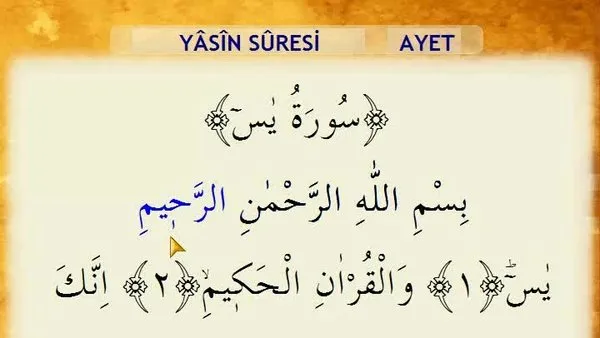 YÂSÎN SÛRESİ AYET
﴿سُورَةُ يٰسٓ﴾
بِسْمِ اللّٰهِ الرَّحْمٰنِ الرَّح۪يمِ
يٰسٓۜ ﴿١﴾ وَالْقُرْاٰنِ الْحَك۪يمِۙ ﴿٢﴾ اِنَّكَ